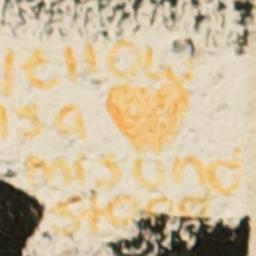 yellow
is a
misund
stood